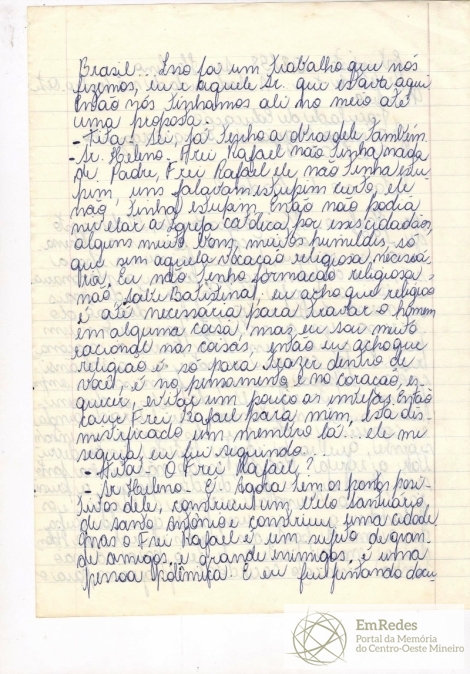 Brasil... Isso foi um trabalho que nós
fizemos, eu e aquele Sr. que estava aqui
então nós tinhamos ali no meio até
uma proposta.
- Tita - Sei, já tenho a obra dele também.
- Sr. Heleno - Frei Rafael não tinha nada
de Padre, Frei Rafael ele não tinha estu
pim, uns falavam estupim curto, ele
não tinha estupim, então não podia
nivelar a Igreja católica por esses cidadãos,
alguns muito bons, muitos humildes, só
que sem aquela vocação religiosa, necessá
ria. Eu não tenho formação religiosa
não, eu acho que religião
é até necessária para travar o homem
em alguma coisa, mas eu sou muito
racional nas coisas, então eu acho que
religião é só para trazer dentro de
você, é no pensamento e no coração, es
quecer, evitar um pouco as Então
Frei Rafael para mim, está des
mistificado um membro lá... ele me
seguia, eu fui seguindo...
- Tita - O Frei Rafael?
- Sr Heleno - É Agora tem os pontos posi
tivos dele, construiu um belo santuário
de santo Antônio e construiu uma cidade
mas o Frei Rafael é um sujeito de gran-
de amigos, e grande inimigos, é uma
pessoa polêmica. E eu fui juntando docu
EmRedes
Portal da Memória
do Centro-Oeste Mineiro